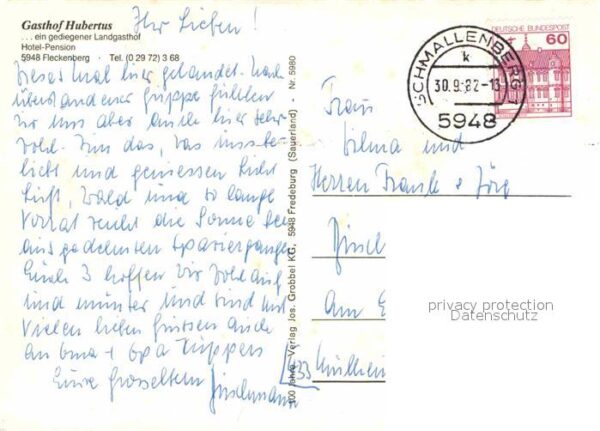 Gasthof Hubertus
... ein gediegener Landgasthof
Hotel-Pension
5948 Fleckenberg · Tel. (0 29 72) 3 68
Ihr Lieben!
Dieses Mal hier gelandet. Nach
überstandener Grippe fühlen
wir uns aber auch hier sehr
wohl. Tun das, was uns
liebt und geniessen
Luft, Wald und so lange
Vorrat reicht die Sonne bei
ausgedehnten Spaziergängen
Euch 3 hoffen wir wohlauf
und munter und sind mit
vielen lieben Grüssen auch
an Oma + Opa Küppers
Eure Grosseltern
100 Jahre · Verlag Jos. Grobbel KG, 5948 Fredeburg (Sauerland) · Nr. 5980
DEUTSCHE BUNDESPOST
60
SCHMALLENBERG 1
k
30.9.82-13
5948
Frau
Wilma und
Herren Frank + Jörg
Am
433 Mülheim
privacy protection
Datenschutz